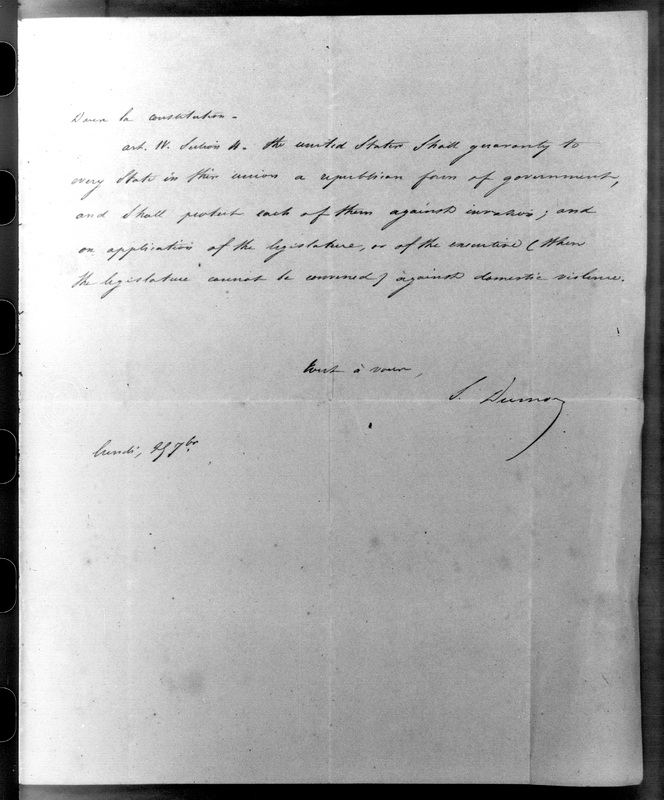 Dans la constitution.
art. IV. Section 4. the united States Shall guaranty to
every State in this union a republican form of government,
and Shall protect each of them against invasion; and
on application of the legislature, or of the executive (When
the legislature cannot be convened) against domestic violence.
tout à vous,
S. Dumon
Lundi, 7br